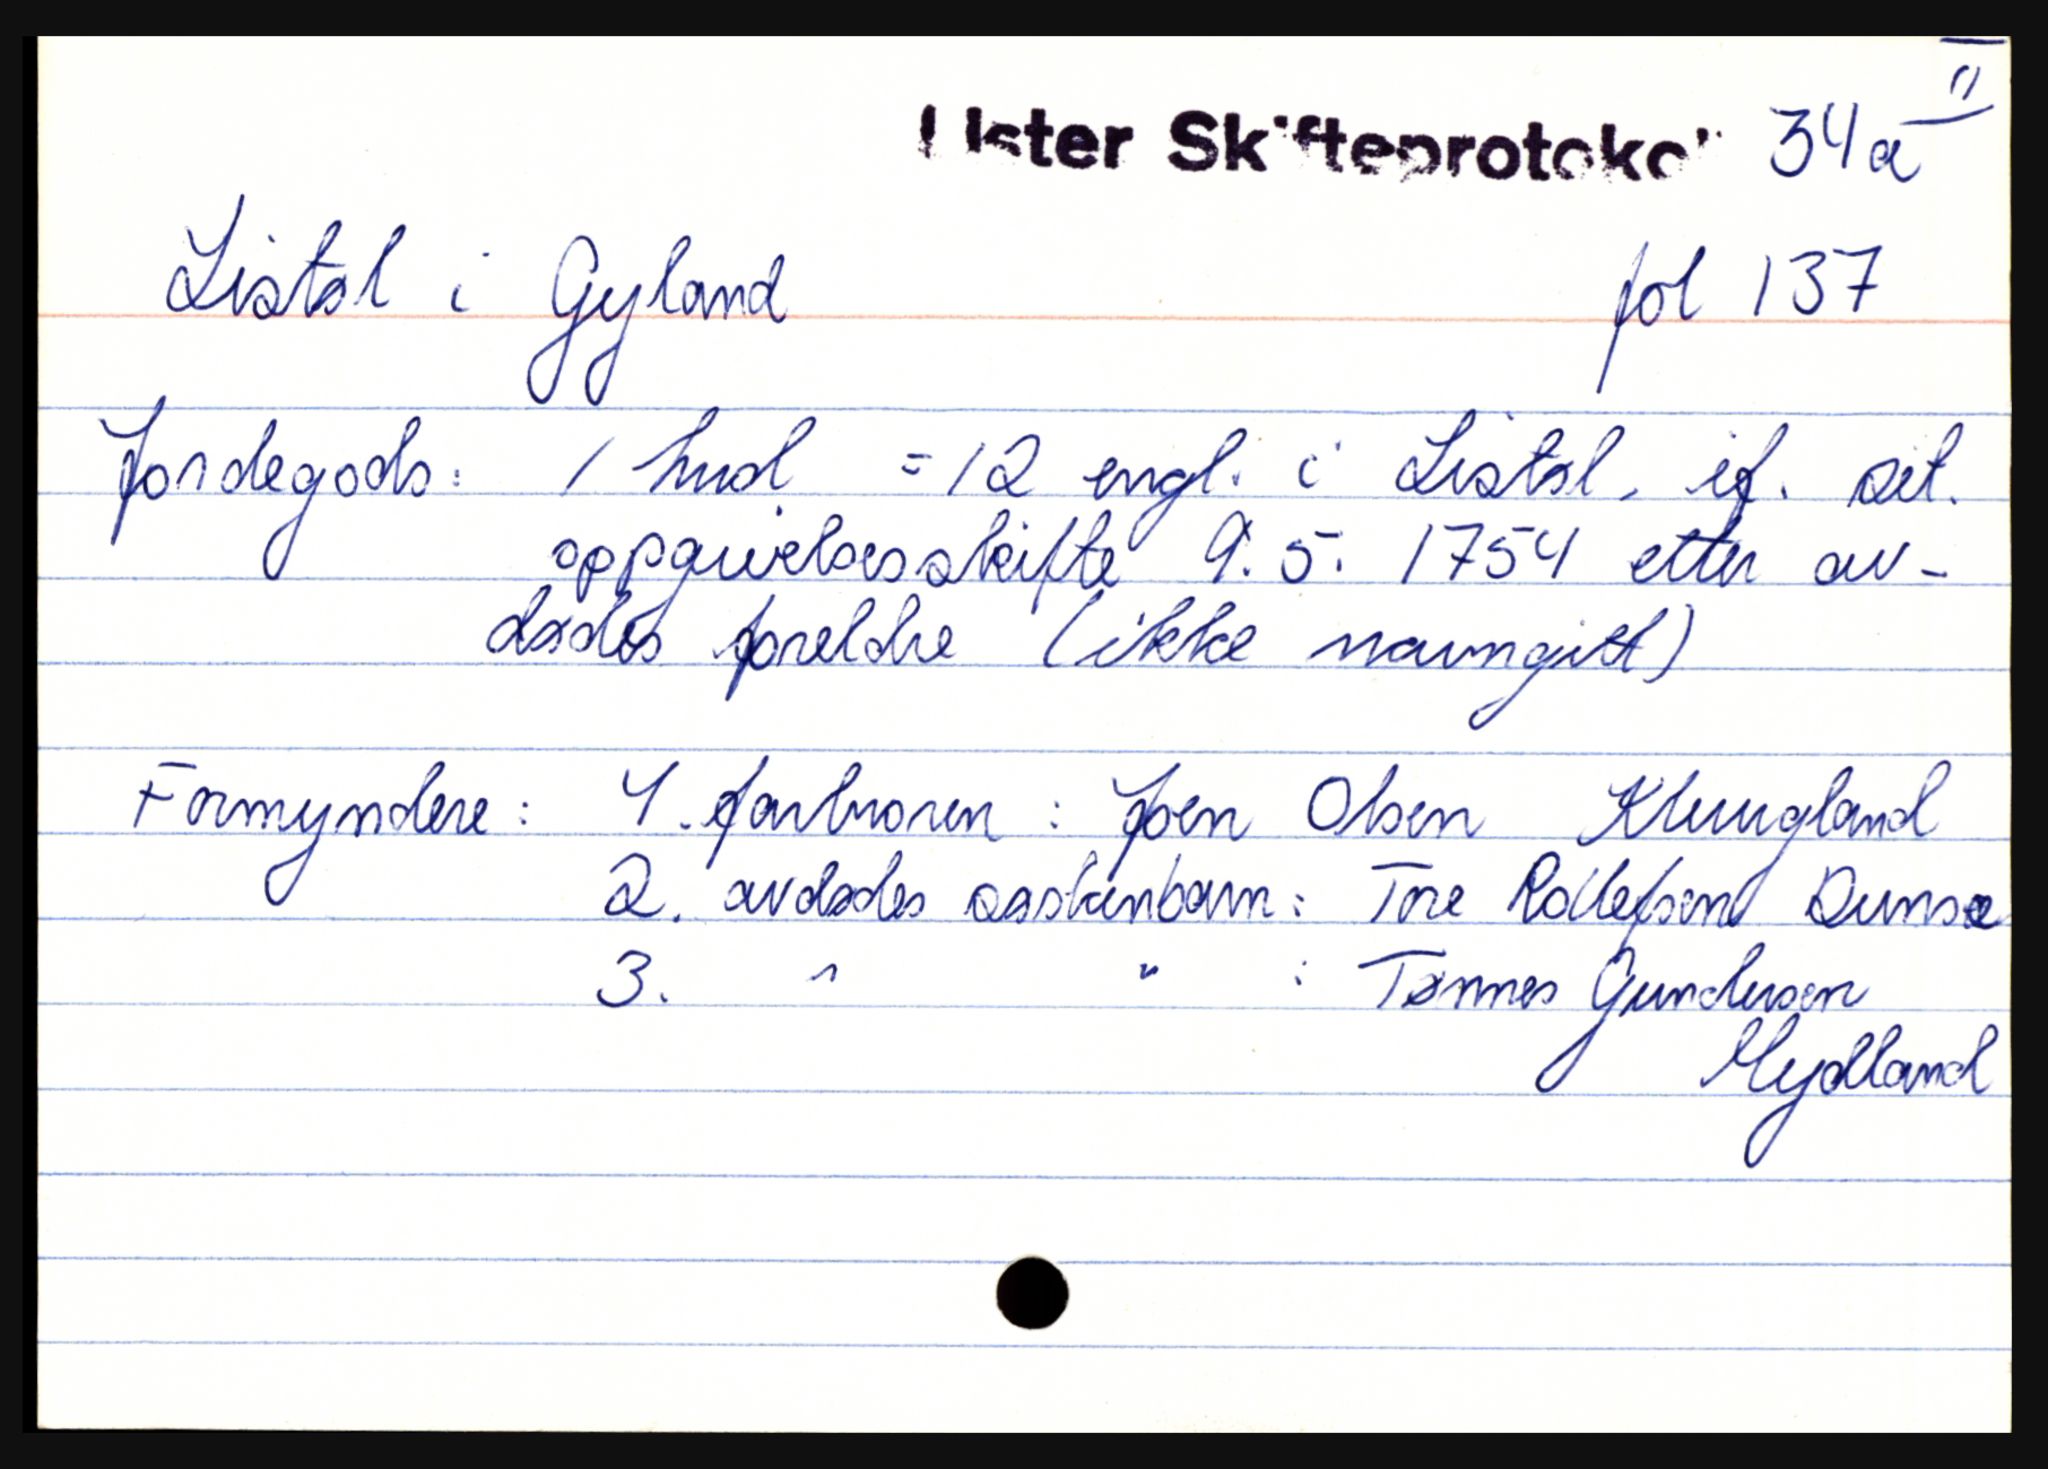 II
Lister Skifteprotokoll 34a
Listøl i Gyland fol 137
Jordegods: 1 hud = 12 engl. i Listøl. if. sit.
oppgivelsesskifte 9.5. 1754 etter av-
dødes foreldre (ikke navngitt)
Formyndere: 1. farbroren: Joen Olsen Klungland
2. avdødes søskenbarn: Tore Rollefsen Dunsæ
3. " " : Tønnes Gundersen
Mydland